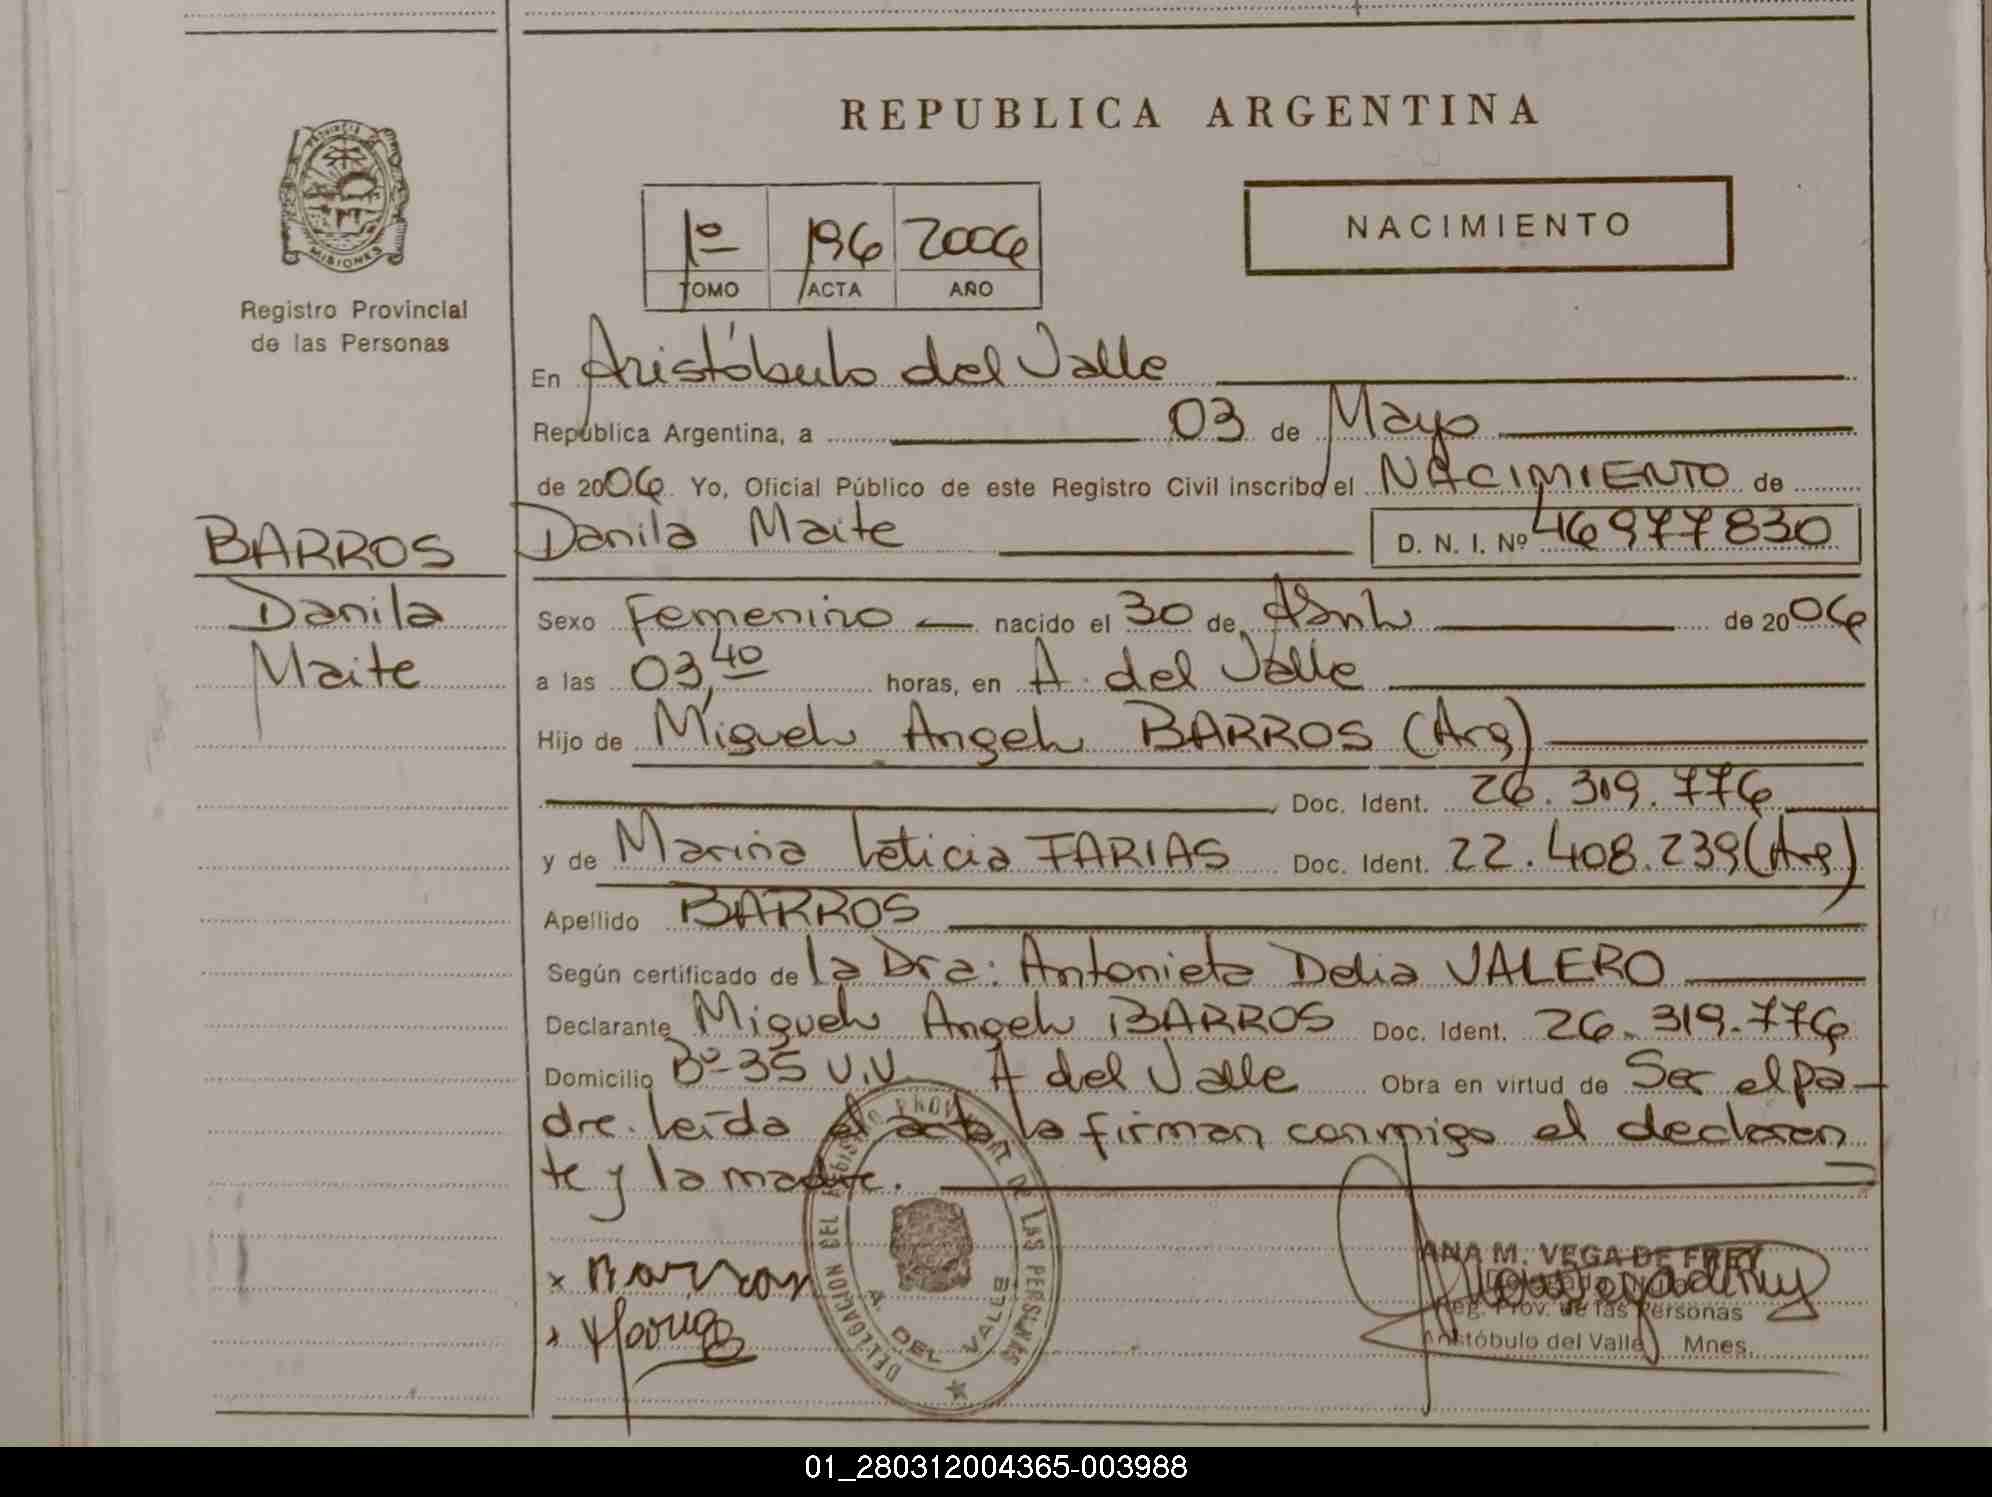 REPUBLICA ARGENTINA
PROVINCIA DE MISIONES
Registro Provincial
de las Personas
NACIMIENTO
1º 196 2006
TOMO ACTA AÑO
En Aristóbulo del Valle
República Argentina, a 03 de Mayo
de 2006. Yo, Oficial Público de este Registro Civil inscribo el NACIMIENTO de
BARROS
Danila
Maite
Danila Maite D. N. I. Nº 46977830
Sexo Femenino nacido el 30 de Abril de 2006
a las 03,40 horas, en A. del Valle
Hijo de Miguel Angel BARROS (Arg)
Doc. Ident. 26.319.776
y de Marina Leticia FARIAS Doc. Ident. 22.408.239 (Arg)
Apellido BARROS
Según certificado de la Dra: Antonieta Delia VALERO
Declarante Miguel Angel BARROS Doc. Ident. 26.319.776
Domicilio Bº 35 V.V. A del Valle Obra en virtud de Ser el pa-
dre. Leída el acta la firman conmigo el declaran
te y la madre.
DELEGACION DEL REGISTRO PROVINCIAL DE LAS PERSONAS
A. DEL VALLE
ANA M. VEGA DE FREY
Reg. Prov. de las Personas
Aristóbulo del Valle Mnes.
01_280312004365-003988